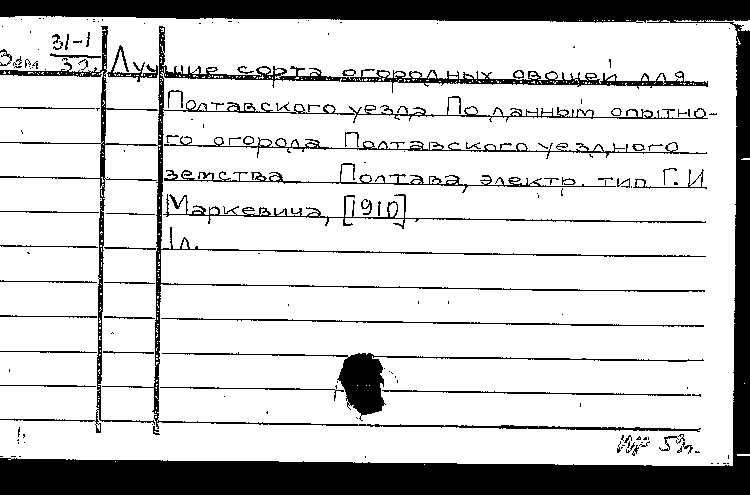 31-1
39. Лучшие сорта огородных овощей для
Полтавского уезда. По данным опытно-
го огорода Полтавского уездного
земства Полтава, электр. тип. Г.И
Маркевича, [1910].
1л.